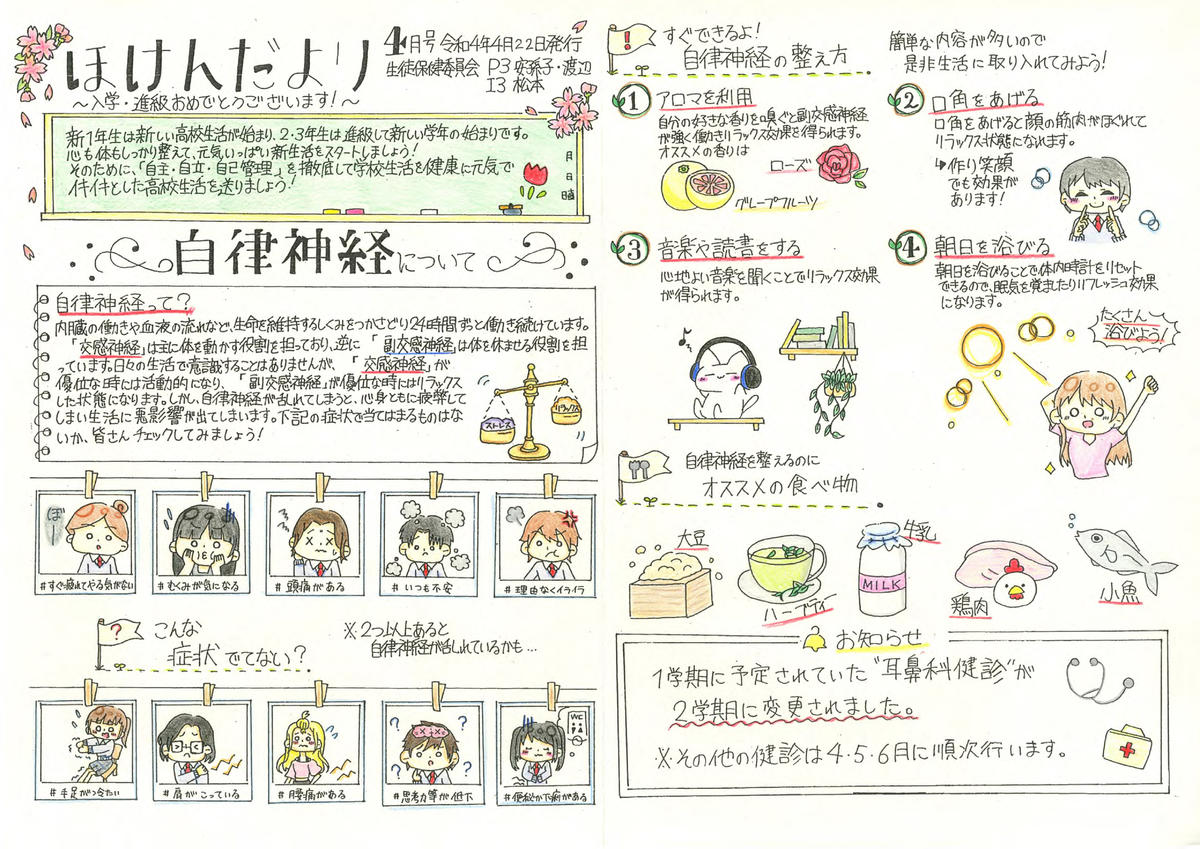 ほけんだより
4月号 令和4年4月22日発行
生徒保健委員会 P3 安孫子・渡辺
I3 松本
～入学・進級おめでとうございます!～
新1年生は新しい高校生活が始まり、2・3年生は進級して新しい学年の始まりです。
心も体もしっかり整えて、元気いっぱい新生活をスタートしましょう!
そのために、「自主・自立・自己管理」を徹底して学校生活を健康に元気で
イキイキとした高校生活を送りましょう!
月
日
自律神経について
自律神経って?
内臓の働きや血液の流れなど、生命を維持するしくみをつかさどり24時間ずっと働き続けています。
「交感神経」は主に体を動かす役割を担っており、逆に「副交感神経」は体を休ませる役割を担
っています。日々の生活で意識することはありませんが、「交感神経」が
優位な時には活動的になり、「副交感神経」が優位な時にはリラックス
した状態になります。しかし、自律神経が乱れてしまうと、心身ともに疲弊して
しまい生活に悪影響が出てしまいます。下記の症状で当てはまるものはな
いか、皆さんチェックしてみましょう!
ストレス
リラックス
ぼー
#すぐ疲れてやる気がない
#むくみが気になる
#頭痛がある
#いつも不安
#理由なくイライラ
?
こんな
症状でてない?
※2つ以上あると
自律神経が乱れているかも…
#手足がつめたい
#肩がこっている
#腰痛がある
#思考力等が低下
WC
#便秘か下痢がある
!
すぐできるよ!
自律神経の整え方
簡単な内容が多いので
是非生活に取り入れてみよう!
1 アロマを利用
自分の好きな香りを嗅ぐと副交感神経
が強く働きリラックス効果を得られます。
オススメの香りは
ローズ
グレープフルーツ
2 口角をあげる
口角をあげると顔の筋肉がほぐれて
リラックス状態になれます。
↳作り笑顔
でも効果が
あります!
3 音楽や読書をする
心地よい音楽を聞くことでリラックス効果
が得られます。
4 朝日を浴びる
朝日を浴びることで体内時計をリセット
できるので、眠気を覚ましたりリフレッシュ効果
になります。
たくさん
浴びよう!
自律神経を整えるのに
オススメの食べ物
大豆
ハーブティ
牛乳
MILK
鶏肉
小魚
お知らせ
1学期に予定されていた"耳鼻科健診"が
2学期に変更されました。
※その他の健診は4・5・6月に順次行います。